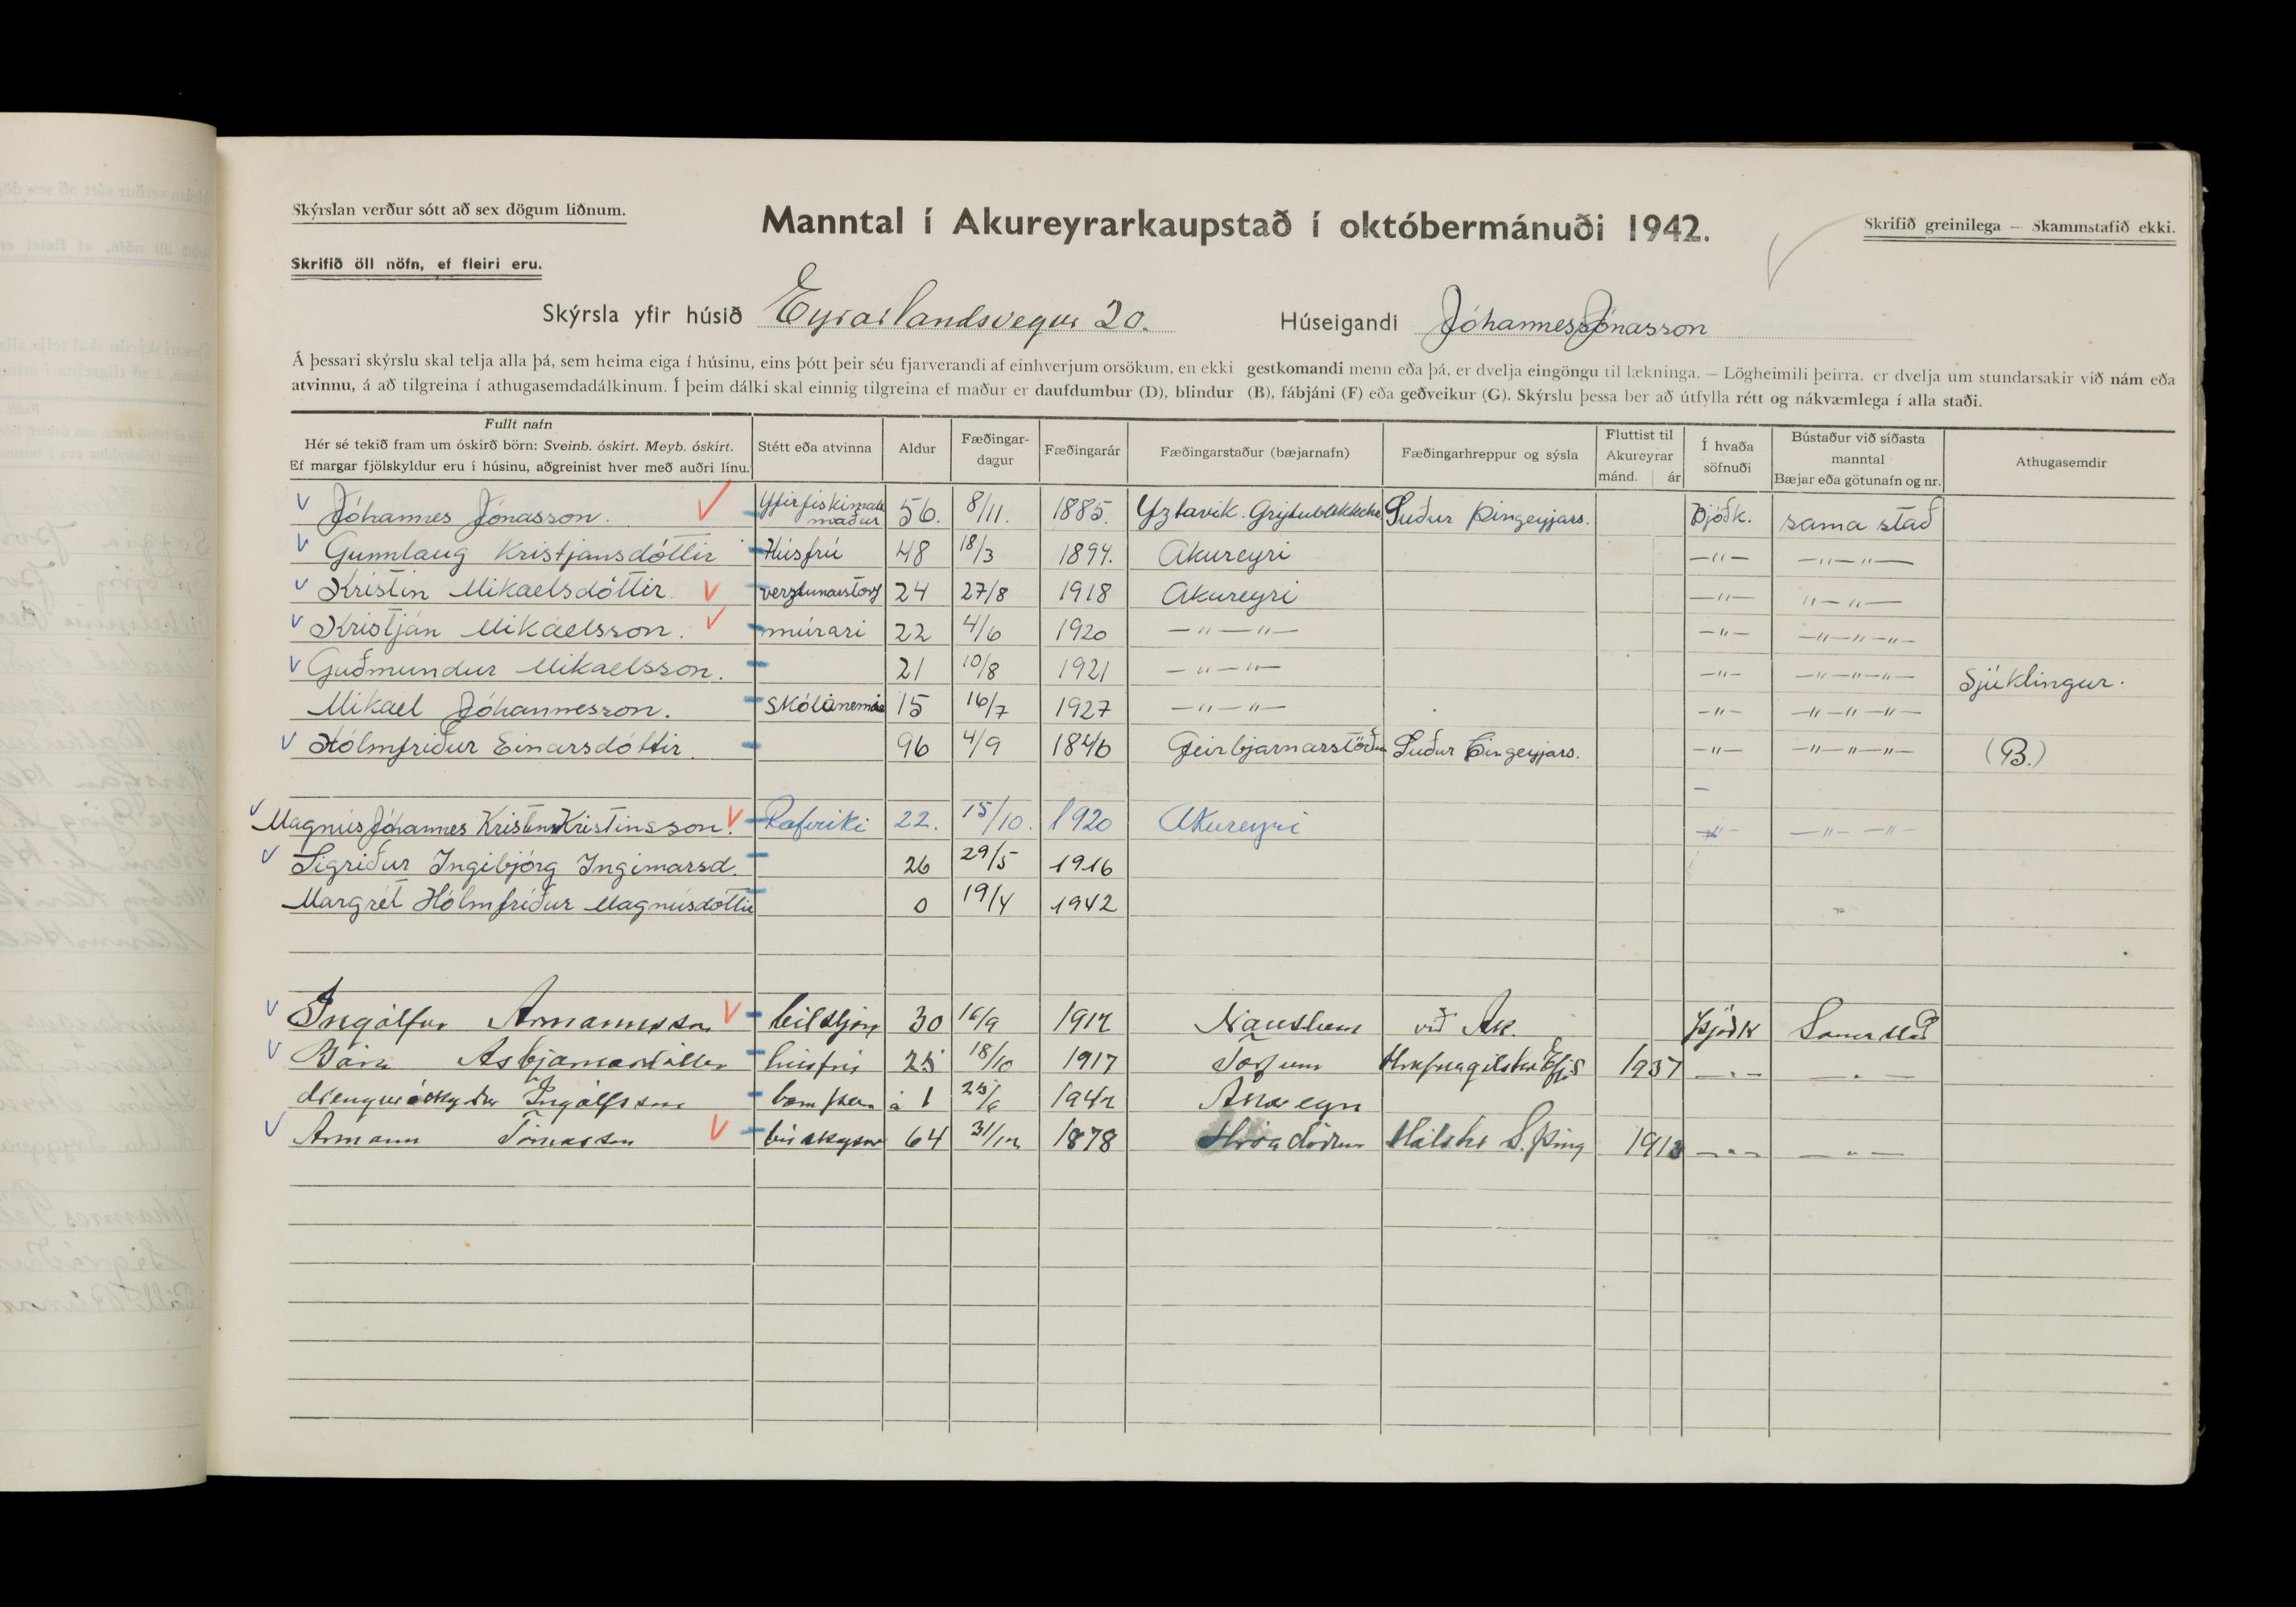 Skýrslan verður sótt að sex dögum liðnum.
Manntal í Akureyrarkaupstað í októbermánuði 1942.
Skrifið greinilega — Skammstafið ekki.
Skrifið öll nöfn, ef fleiri eru.
Skýrsla yfir húsið Eyrarlandsvegur 20.
Húseigandi Jóhannes Jónasson
Á þessari skýrslu skal telja alla þá, sem heima eiga í húsinu, eins þótt þeir séu fjarverandi af einhverjum orsökum, en ekki gestkomandi menn eða þá, er dvelja eingöngu til lækninga. — Lögheimili þeirra, er dvelja um stundarsakir við nám eða
atvinnu, á að tilgreina í athugasemdadálkinum. Í þeim dálki skal einnig tilgreina ef maður er daufdumbur (D), blindur (B), fábjáni (F) eða geðveikur (G). Skýrslu þessa ber að útfylla rétt og nákvæmlega í alla staði.
Fullt nafn
Hér sé tekið fram um óskírð börn: Sveinb. óskírt. Meyb. óskírt.
Ef margar fjölskyldur eru í húsinu, aðgreinist hver með auðri línu.
Stétt eða atvinna
Aldur
Fæðingar-
dagur
Fæðingarár
Fæðingarstaður (bæjarnafn)
Fæðingarhreppur og sýsla
Fluttist til
Akureyrar
mánd. ár
Í hvaða
söfnuði
Bústaður við síðasta
manntal
Bæjar eða götunafn og nr.
Athugasemdir
Jóhannes Jónasson. Yfirfiskimats maður 56. 8/11. 1885. Yztavik. Suður Þingeyjars. Þjóðk. sama stað
Gunnlaug Kristjansdóttir Húsfrú 48 18/3 1894. Akureyri —〃— —〃—〃—
Kristin Mikaelsdóttir. 24 27/8 1918 Akureyri —〃— 〃—〃—
Kristján Mikaelsson. múrari 22 4/6 1920 —〃—〃— —〃— —〃—〃—〃—
Guðmundur Mikaelsson. 21 10/8 1921 —〃—〃— —〃— —〃—〃—〃— Sjúklingur.
Mikael Jóhannesson. 15 16/7 1927 —〃—〃— —〃— —〃—〃—〃—
Hólmfriður Einarsdóttir. 96 4/9 1846 Geirbjarnarstöðum Suður Þingeyjars. —〃— —〃—〃—〃— (B.)
Magnús Jóhannes Kristinn Kristinsson. Rafvirki 22. 15/10. 1920 Akureyri —〃— —〃— —〃—
Sigriður Ingibjörg Ingimarsd. 26 29/5 1916
Margrét Hólmfríður Magnúsdóttir 0 19/4 1942
Ingólfur Ármannsson bílstjóri 30 1912 við Ak. Þjóðk Sama stað
Bára Ásbjarnardóttir húsfrú 25 18/10 1917 1937 —〃— —〃—
drengur óskýrður Ingólfsson á 1 1942 Akureyri
Ármann Tómasson 64 31/12 1878 Hálshr S. Þing 1913 —〃— —〃—